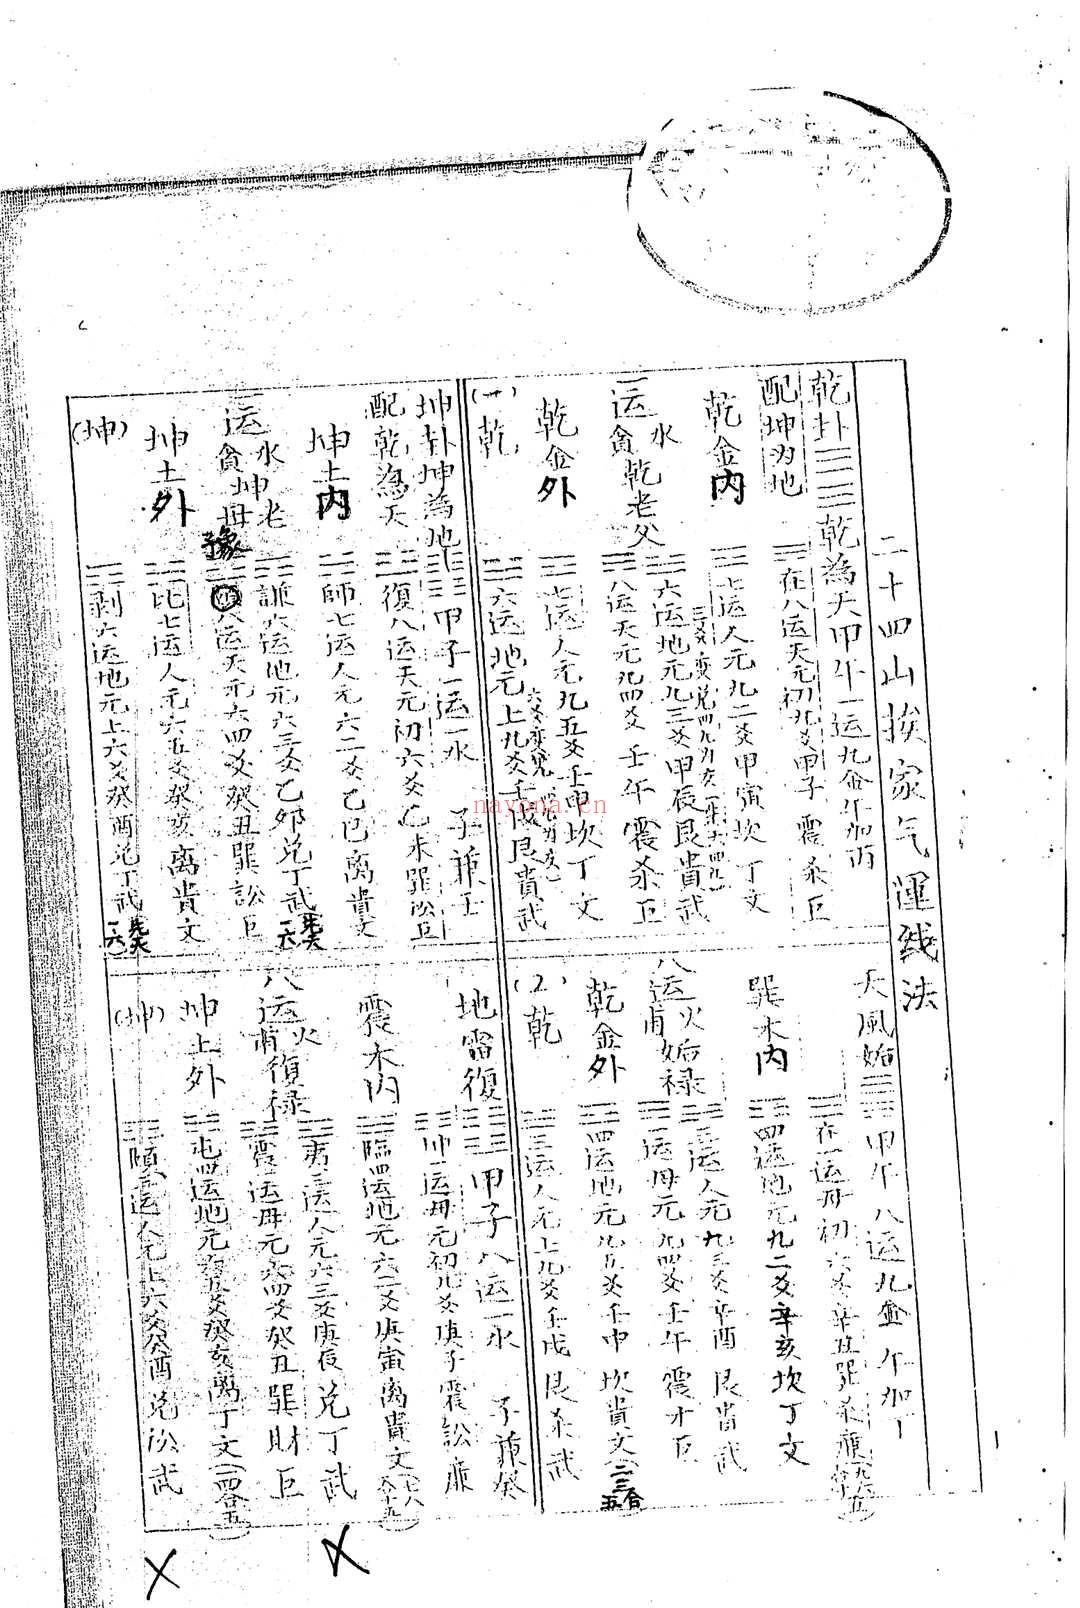 二十四山挨家气運线法
乾卦 乾為天甲午一运九金午加丙
配坤为地 在八运天元初九爻甲子 震 杀巨
乾金内 七运人元九二爻甲寅坎 丁文
六运地元九三爻甲辰艮貴武
一运貪 水 乾老父 八运天元九四爻 壬午 震杀巨
乾金外 七运人元九五爻壬申坎丁文
(一)乾 六运地元上九爻壬戌艮貴武
坤卦坤為地 甲子一运一水 子兼壬
配乾為天 復八运天元初六爻乙未巽訟巨
坤土内 師七运人元六二爻乙巳离貴文
謙六运地元六三爻乙卯兑丁武
一运貪 水 坤老母 豫 八运天元六四爻癸丑巽訟巨
坤土外 比七运人元六五爻癸亥离貴文
(坤) 剥六运地元上六爻癸酉兑丁武
天風姤 甲午八运九金 午加丁
在一运母初六爻辛丑巽杀廉
巽木内 四运地元九二爻辛亥坎丁文
三运人元九三爻辛酉艮貴武
八运輔 火 姤禄 一运母元九四爻壬午震才巨
乾金外 四运地元九五爻壬申坎貴文(二三合五
(2)乾 三运人元上九爻壬戌艮杀武
地雷復 甲子八运一水 子兼癸
坤一运母元初九爻庚子震訟廉
震木内 臨四运地元六二爻庚寅离貴文
夷三运人元六三爻庚辰兑丁武
八运輔 火 復禄 震一运母元六四爻癸丑巽財巨
坤土外 屯四运地元九五爻癸亥离丁文(一四合五)
(坤) 頤三运人元上六爻癸酉兑訟武
nayona.cn